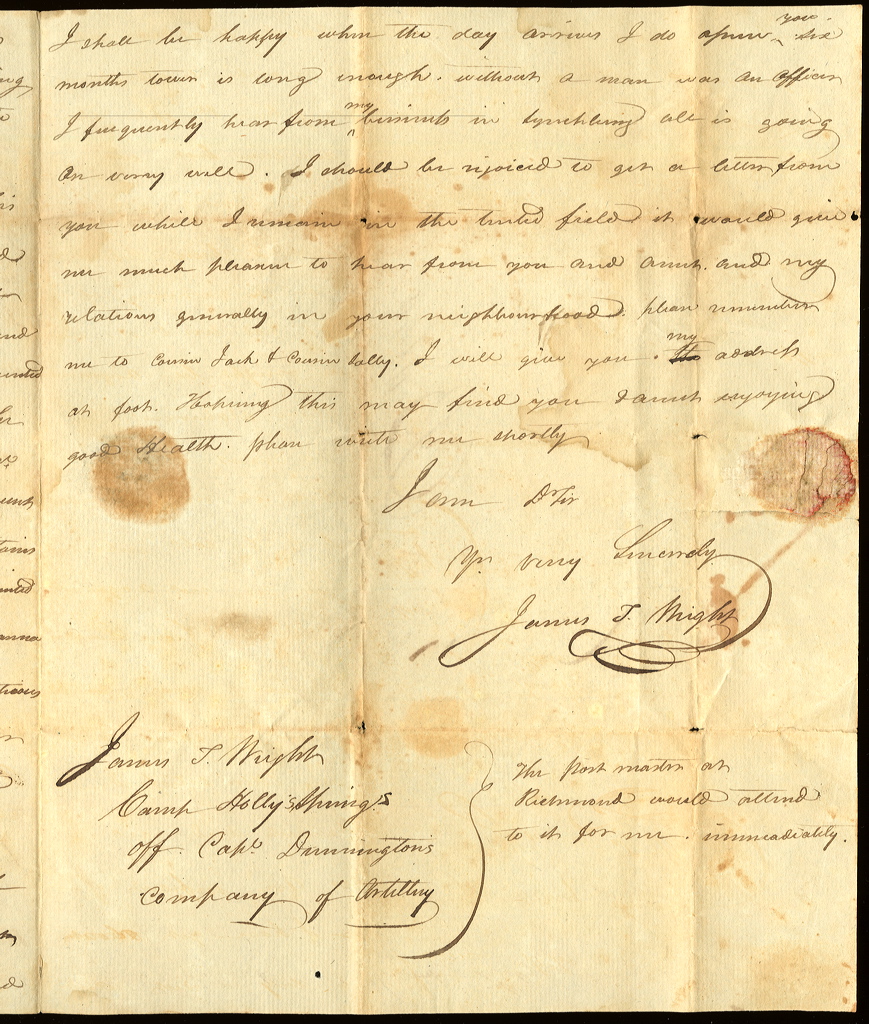 I shall be happy when the day arrives I do assure you six
months tower is long enough. without a man was an officer
I frequently hear from my in Lynchburg all is going
on verry well. I should be rejoiced to get a letter from
you while I remain in the tented field it would give
me much pleasure to hear from you and aunt. and my
relations generally in your neighbourhood. please remember
me to Cousin Jack & Cousin Sally. I will give you my address
at foot. Hopeing this may find you & aunt enjoying
good Health. please write me shortly
I am Dr Sir
Yr. verry Sincerely
James T. Wright
James T. Wright
Camp Holly Springs
off. Capt. Dunnington's
company of Artillery
The post master at
Richmond would attend
to it for me. immeadiately.